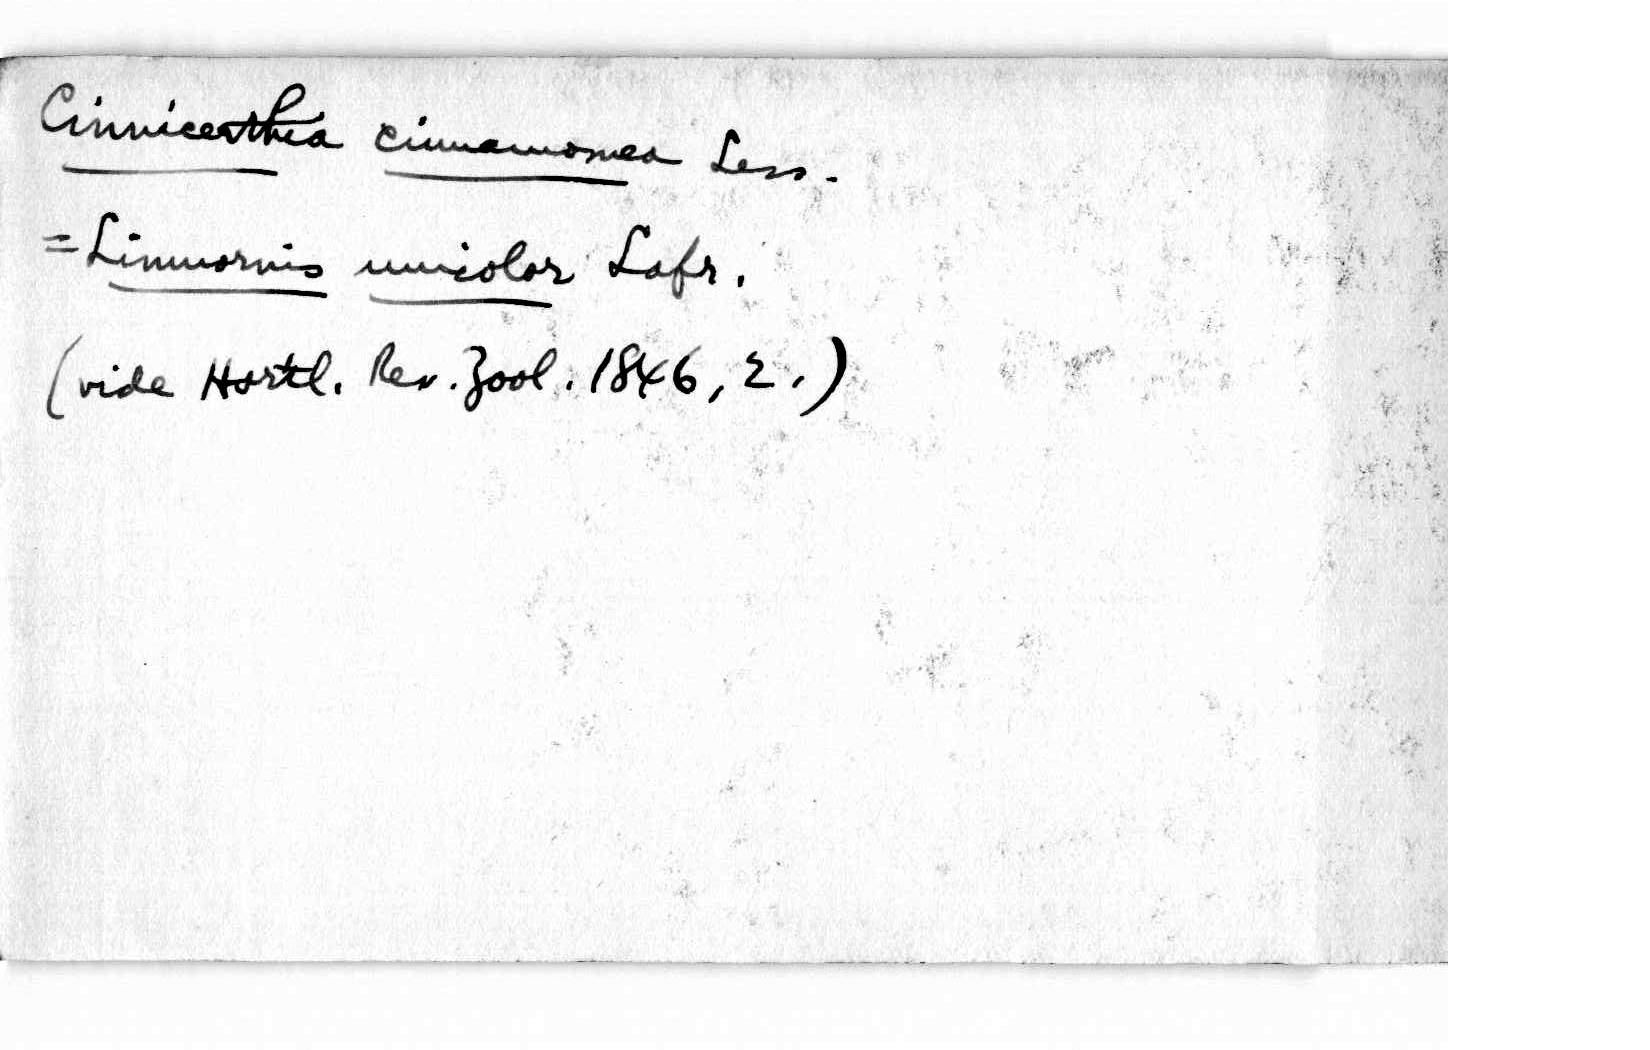 Cinnicerthia cinnamomea Less.
= Limnornis unicolor Lafr.
(vide Hartl. Rev. Zool. 1846, 2.)